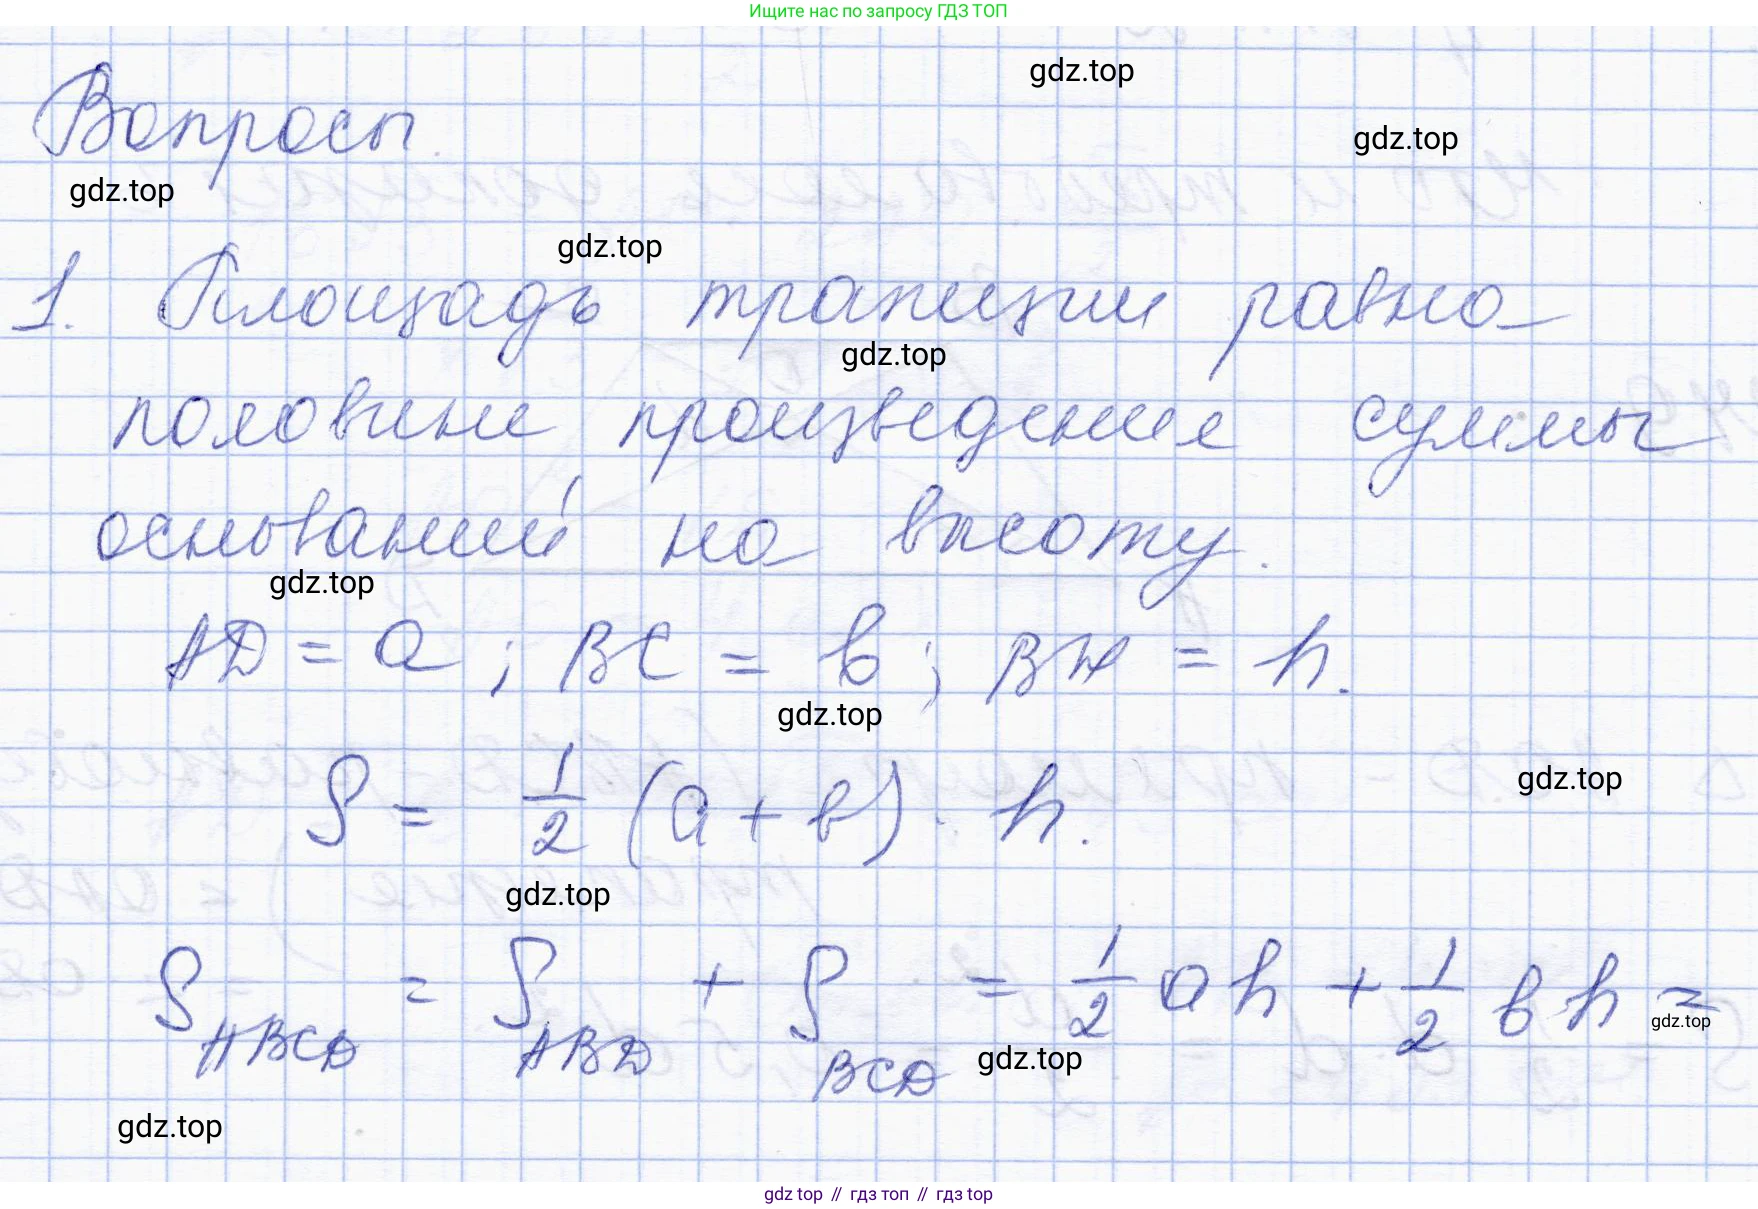 Ищите нас по запросу ГДЗ ТОП
gdz.top
Вопросы.
gdz.top
gdz.top
gdz.top
1. Площадь трапеции равна
gdz.top
половине произведение суммы
оснований на высоту.
gdz.top
AD = a ; BC = b ; BH = h.
gdz.top
gdz.top
S = 1/2 (a + b) · h.
gdz.top
S_ABCD = S_ABD + S_BCD = 1/2 ah + 1/2 bh =
gdz.top
gdz.top
gdz.top
gdz top // гдз топ // гдз top